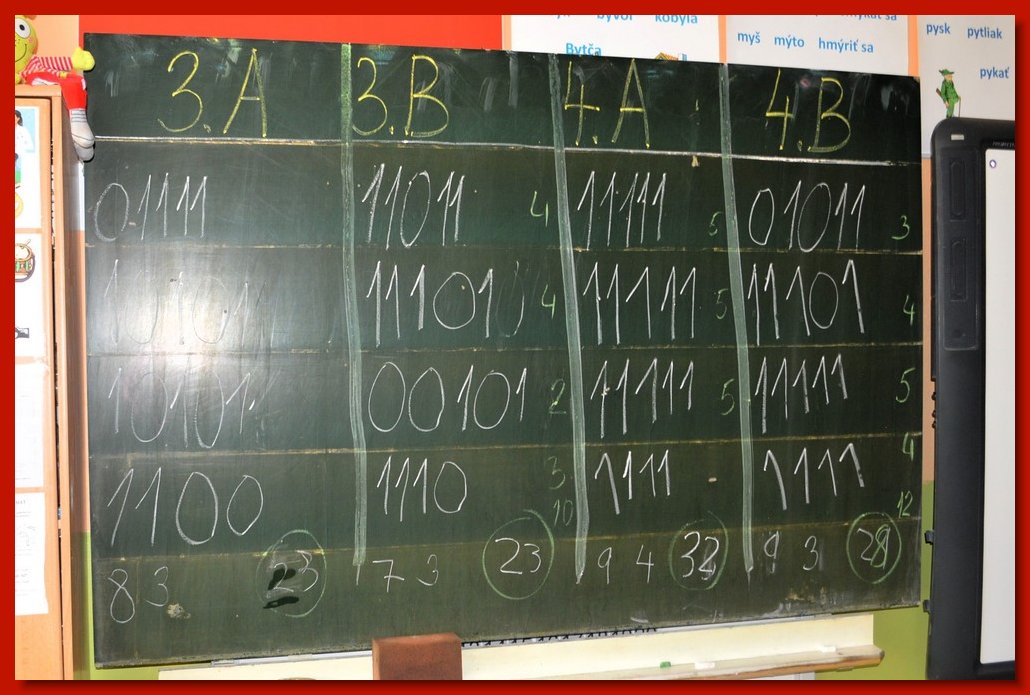 vý bývoľ kobyla
Bytča
myš mýto hmýriť sa
pysk pytliak
pykať
3.A 3.B 4.A 4.B
01111 11011 4 11111 5 01011 3
101011 11101 4 11111 5 11101 4
10101 00101 2 11111 5 11111 5
1100 1110 3 1111 1111 4
10 12
8 3 23 7 3 23 9 4 32 9 3 28